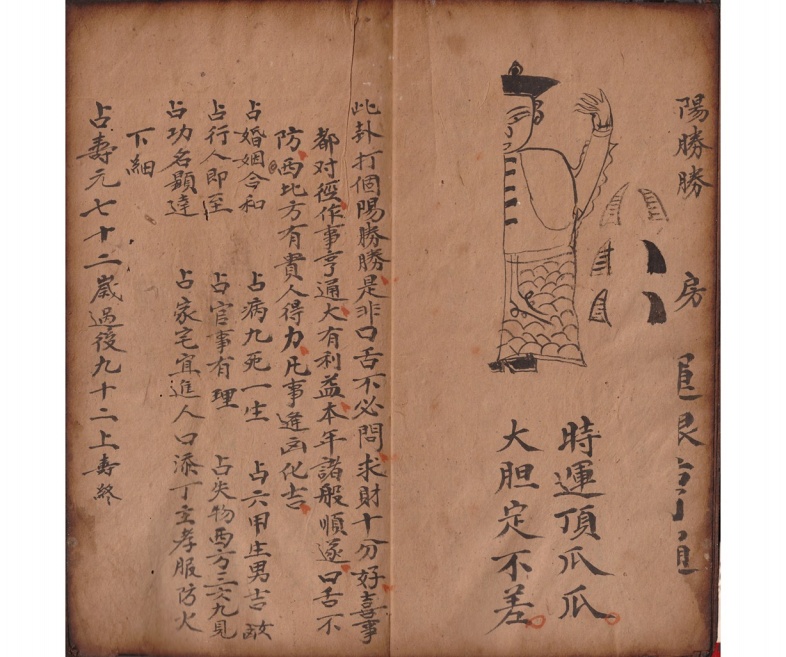 陽勝勝　房
時運頂瓜瓜
大胆定不差
此卦打個陽勝勝是非口舌不必問求財十分好喜事
都对徑作事亨通大有利益本年諸般順遂口舌不
防西比方有貴人得力凡事逢凶化吉
占婚姻合和　占病九死一生　占六甲生男吉
占行人即至　占官事有理　占失物西方三六九見
占功名顯達　占家宅宜進人口添丁主孝服防火
下細
占壽元七十二歲過後九十二上壽終